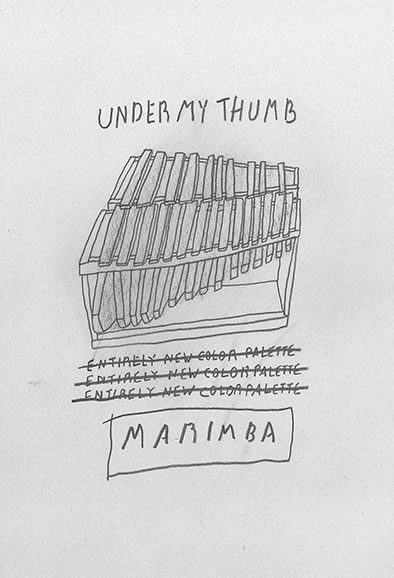 UNDER MY THUMB
ENTIRELY NEW COLOR PALETTE
ENTIRELY NEW COLOR PALETTE
ENTIRELY NEW COLOR PALETTE
MARIMBA